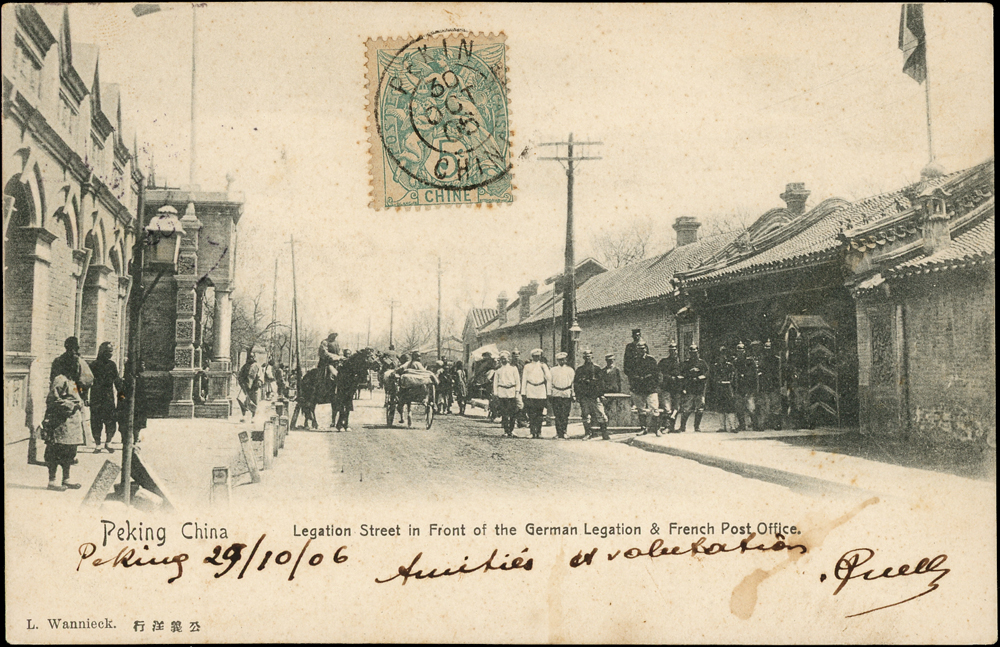 PEKIN
CHINE
POSTE FRANÇAISE
5
CHINE
Peking China
Legation Street in Front of the German Legation & French Post Office.
Peking 29/10/06 Amitiés et
L. Wannieck. 行洋義公